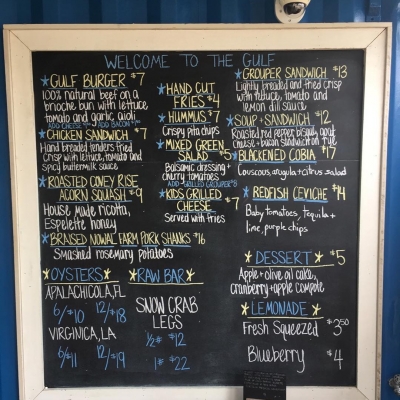 WELCOME TO THE GULF
★GULF BURGER $7
100% natural beef on a
brioche bun with lettuce
tomato and garlic aioli
ADD CHEESE ADD BACON
★CHICKEN SANDWICH $7
Hand breaded tenders fried
Crisp with lettuce, tomato and
spicy buttermilk sauce
★ROASTED COVEY RISE
ACORN SQUASH $9
House made ricotta,
Espelette honey
★BRAISED NOWAE FARM PORK SHANKS $16
Smashed rosemary potatoes
★HAND CUT
FRIES $4
★HUMMUS $7
Crispy pita chips
★MIXED GREEN
SALAD $5
Balsamic dressing +
cherry tomatoes
ADD GRILLED GROUPER $8
★KIDS GRILLED
CHEESE $7
Served with fries
★GROUPER SANDWICH $13
Lightly breaded and fried crisp
with lettuce, tomato and
lemon dill sauce
★SOUP + SANDWICH $12
Roasted red pepper bisque, goat
cheese + bacon sandwich on rye
★BLACKENED COBIA $17
Couscous, arugula + citrus salad
★REDFISH CEVICHE $14
Baby tomatoes, tequila +
lime, purple chips
★DESSERT★ $5
Apple + olive oil cake,
cranberry + apple compote
★LEMONADE★
Fresh Squeezed $3.50
Blueberry $4
★OYSTERS★
APALACHICOLA, FL
6/$10 12/$18
VIRGINICA, LA
6/$11 12/$19
★RAW BAR★
SNOW CRAB
LEGS
1/2# $12
1# $22